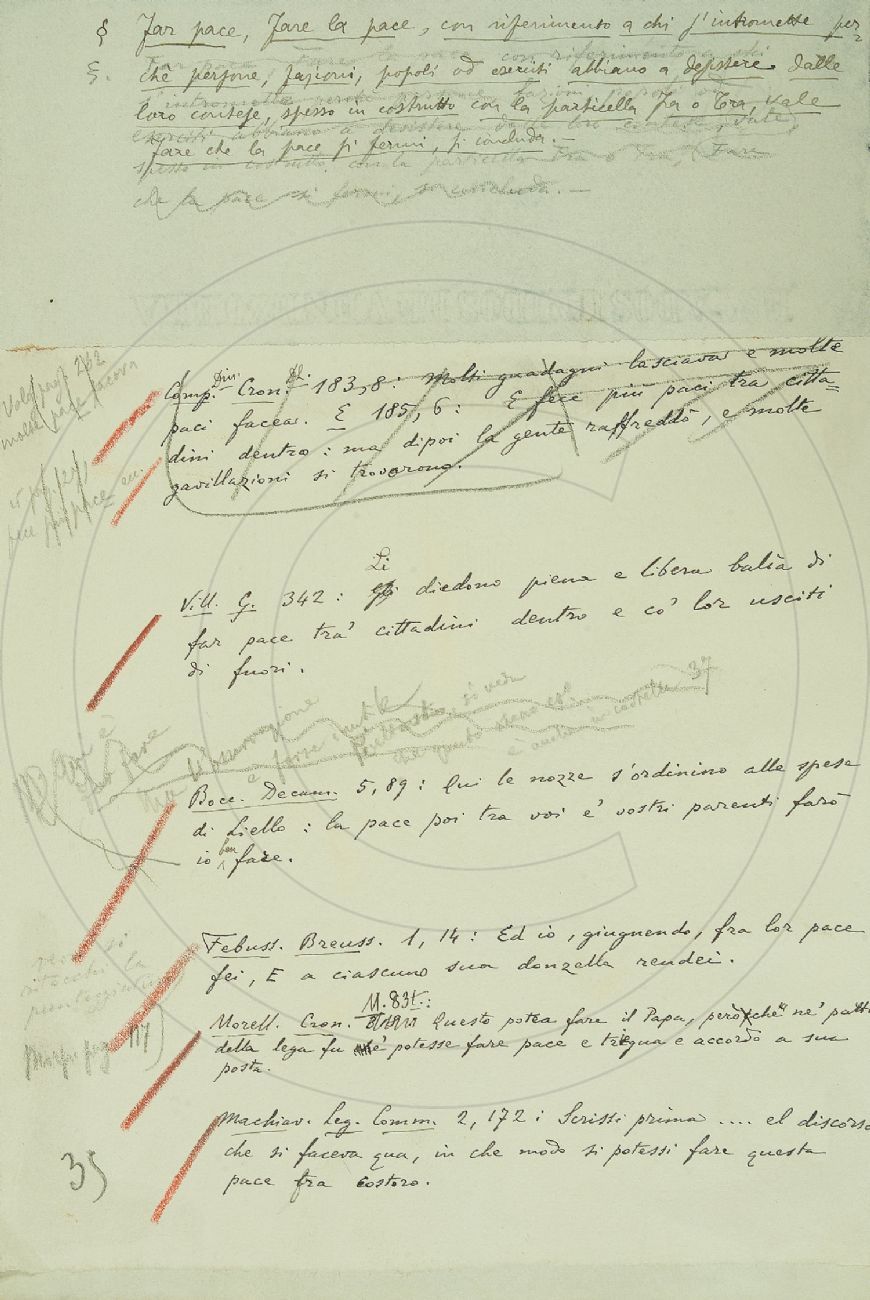 § Far pace, Fare la pace, con riferimento a chi s'intromette per
che persone, fazioni, popoli od eserciti abbiano a desistere dalle
loro contese, spesso in costrutto con la particella Fra o Tra, vale
fare che la pace si fermi, si concluda. —
§.
spesso in costrutto con la particella Fra o Tra, Fare
che la pace si fermi, si concluda. —
molte pace faceva
Comp. Din. Cron. Dl. 183, 8: Molti guadagni lasciava e molte
paci facea. E 185, 6: E fece più paci tra citta=
dini dentro: ma dipoi la gente raffreddò, e molte
gavillazioni si trovorono.
Vill. G. 342: Li diedono piena e libera balìa di
far pace tra' cittadini dentro e co' lor usciti
di fuori.
37
Bocc. Decam. 5, 89: Qui le nozze s'ordinino alle spese
di Liello: la pace poi tra voi e' vostri parenti farò
io ben fare.
Febuss. Breuss. 1, 14: Ed io, giugnendo, fra lor pace
fei, E a ciascuno sua donzella rendei.
Morell. Cron. Questo potea fare il Papa, però che ne' patti
della lega fu che potesse fare pace e triegua e accordo a sua
posta.
Machiav. Leg. Comm. 2, 172: Scrissi prima .... el discorso
che si faceva qua, in che modo si potessi fare questa
pace tra costoro.
35